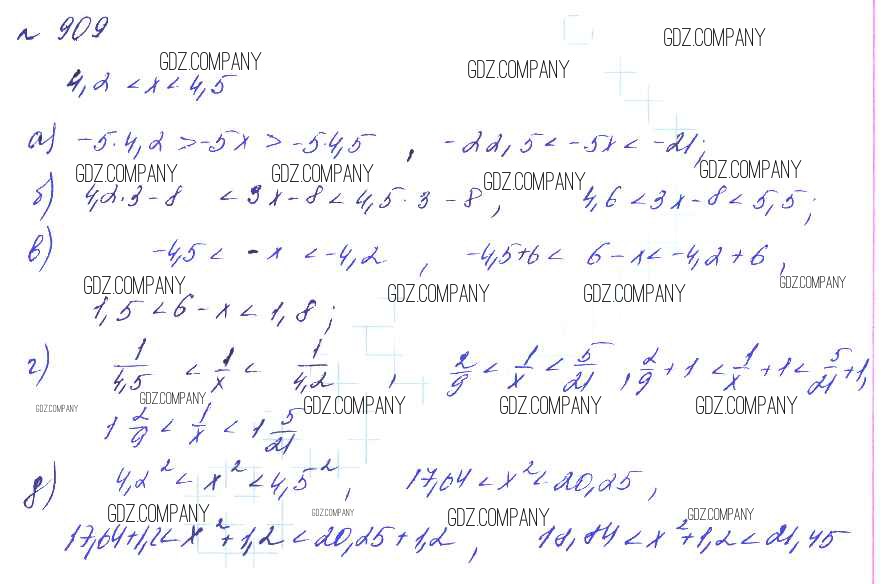 № 909
GDZ.COMPANY GDZ.COMPANY GDZ.COMPANY
4,2 < x < 4,5
а) -5·4,2 > -5x > -5·4,5 , -22,5 < -5x < -21;
GDZ.COMPANY GDZ.COMPANY GDZ.COMPANY GDZ.COMPANY
б) 4,2·3-8 < 3x-8 < 4,5·3-8, 4,6 < 3x-8 < 5,5;
в) -4,5 < -x < -4,2 , -4,5+6 < 6-x < -4,2+6,
GDZ.COMPANY GDZ.COMPANY GDZ.COMPANY GDZ.COMPANY
1,5 < 6-x < 1,8;
г) 1/4,5 < 1/x < 1/4,2 , 2/9 < 1/x < 5/21 , 2/9+1 < 1/x+1 < 5/21+1,
GDZ.COMPANY GDZ.COMPANY GDZ.COMPANY GDZ.COMPANY GDZ.COMPANY
1 2/9 < 1/x < 1 5/21
д) 4,2² < x² < 4,5² , 17,64 < x² < 20,25,
GDZ.COMPANY GDZ.COMPANY GDZ.COMPANY GDZ.COMPANY
17,64+1,2 < x²+1,2 < 20,25+1,2 , 18,84 < x²+1,2 < 21,45